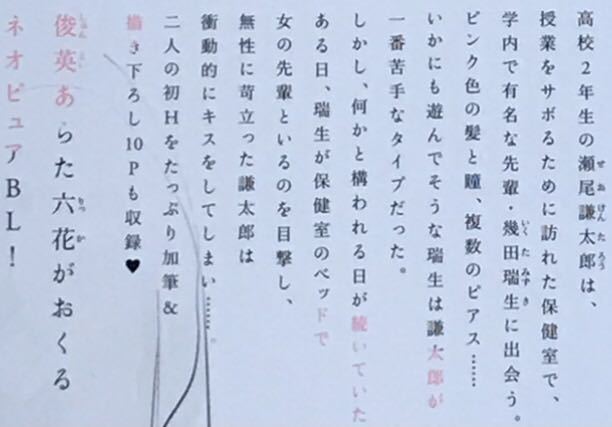 高校2年生の瀬尾謙太郎は、
授業をサボるために訪れた保健室で、
学内で有名な先輩・幾田瑞生に出会う。
ピンク色の髪と瞳、複数のピアス……
いかにも遊んでそうな瑞生は謙太郎が
一番苦手なタイプだった。
しかし、何かと構われる日が続いていた
ある日、瑞生が保健室のベッドで
女の先輩といるのを目撃し、
無性に苛立った謙太郎は
衝動的にキスをしてしまい……。
二人の初Hをたっぷり加筆&
描き下ろし10Pも収録♥
俊英あらた六花がおくる
ネオピュアBL!